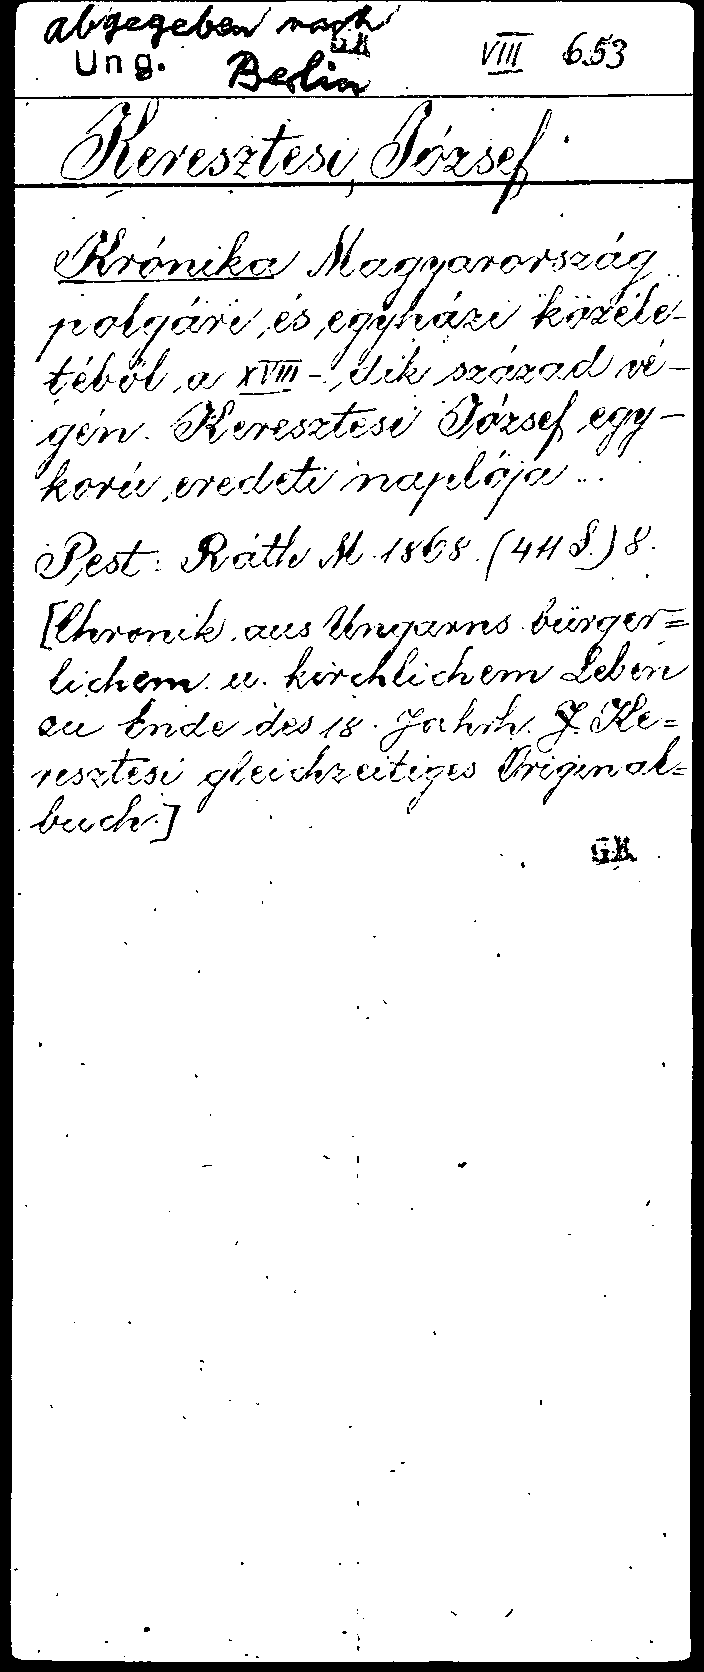 abgegeben nach
GK
Ung. Berlin VIII 653
Keresztesi, József
Krónika Magyarország
polgári és egyházi közéle-
téből a XVIII-dik század vé-
gén. Keresztesi József egy-
korú eredeti naplója ..
Pest: Ráth M. 1868. (411 S.) 8.
[Chronik aus Ungarns bürger=
lichem u. kirchlichem Leben
zu Ende des 18. Jahrh. J. Ke=
resztesi gleichzeitiges Original=
buch.]
GK